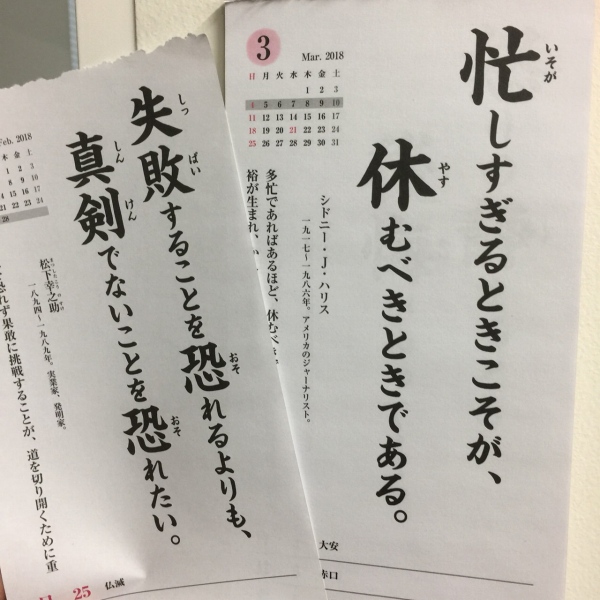 3
Mar. 2018
日 月 火 水 木 金 土
1 2 3
4 5 6 7 8 9 10
11 12 13 14 15 16 17
18 19 20 21 22 23 24
25 26 27 28 29 30 31
いそが
忙しすぎるときこそが、
やす
休むべきときである。
シドニー・J・ハリス
一九一七~一九八六年。アメリカのジャーナリスト。
多忙であればあるほど、休むべき
裕が生まれ、
大安
赤口
Feb. 2018
木 金 土
1 2 3
8 9 10
14 15 16 17
21 22 23 24
28
しっ ぱい おそ
失敗することを恐れるよりも、
しん けん おそ
真剣でないことを恐れたい。
松下幸之助
一八九四~一九八九年。実業家、発明家。
恐れず果敢に挑戦することが、道を切り開くために重
25
仏滅